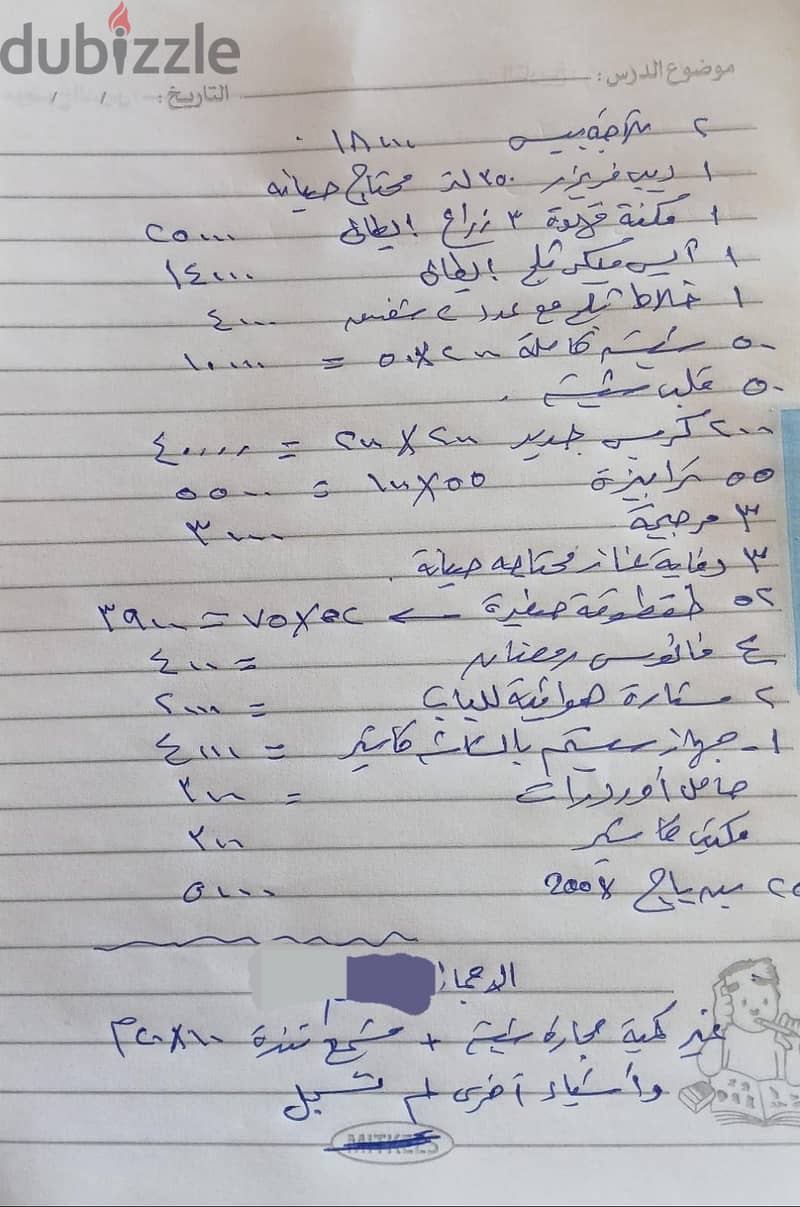 dubizzle
موضوع الدرس:
التاريخ: / /
٢ ثلاجة بيبسى ١٨٠٠٠
١ ديب فريزر ٢٥٠ لتر محتاج صيانه
١ مكنة قهوة ٣ زراع ايطالى ٢٥٠٠٠
١ آيس ميكر ثلج ايطالى ١٤٠٠٠
١ خلاط ثلج مع عدد ٢ شفشق ٤٠٠٠
٥٠ شيشة كاملة ٢٠٠×٥٠ = ١٠٠٠٠
٥٠ قلب شيشة
٢٠٠ كرسى جديد ٢٠٠×٢٠٠ = ٤٠٠٠٠
٥٥ ترابيزة ٥٥×١٠٠ = ٥٥٠٠
٣ مرجيحة ٣٠٠٠
٣ دفاية غاز محتاجه صيانة
٥٢ طقطوقة صغيرة ← ٥٢×٧٥ = ٣٩٠٠
٤ فانوس رمضان = ٤٠٠
٢ ستارة هوائية للباب = ٢٠٠٠
١- جهاز سيستم بالشاشة كاشير = ٤٠٠٠
حامل أوردرات = ٢٠٠
مكتب كاشير ٢٠٠
٢٥ لى باى 200× ٥٠٠٠
الاجمالى
غير كمية حجارة شيشة + مشمع تندة ١٠×٣٥
وأشياء آخرى لم تسجل
MITKEES